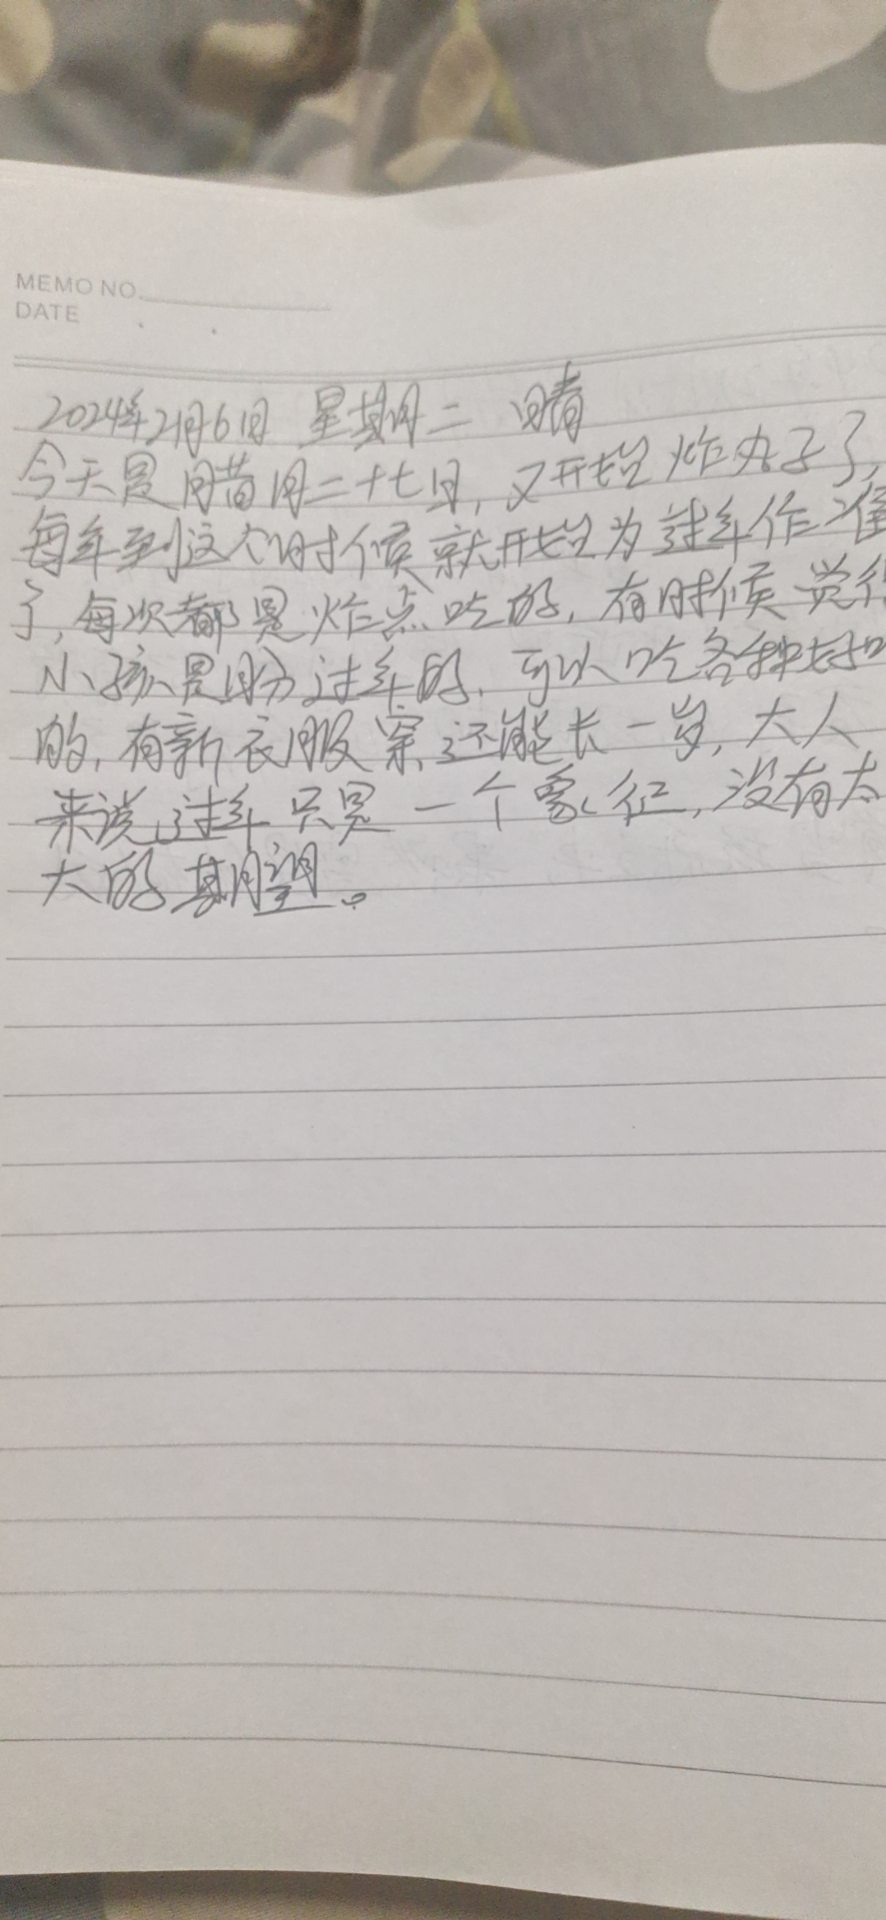 MEMO NO.
DATE
2024年2月6日 星期二 晴
今天是腊月二十七日，又开始炸丸子了，
每年到这个时候就开始为过年作准
了，每次都是炸点吃的，有时候觉得
小孩是盼过年的，可以吃各种好吃
的，有新衣服穿，还能长一岁，大人
来说过年只是一个象征，没有太
大的期望。